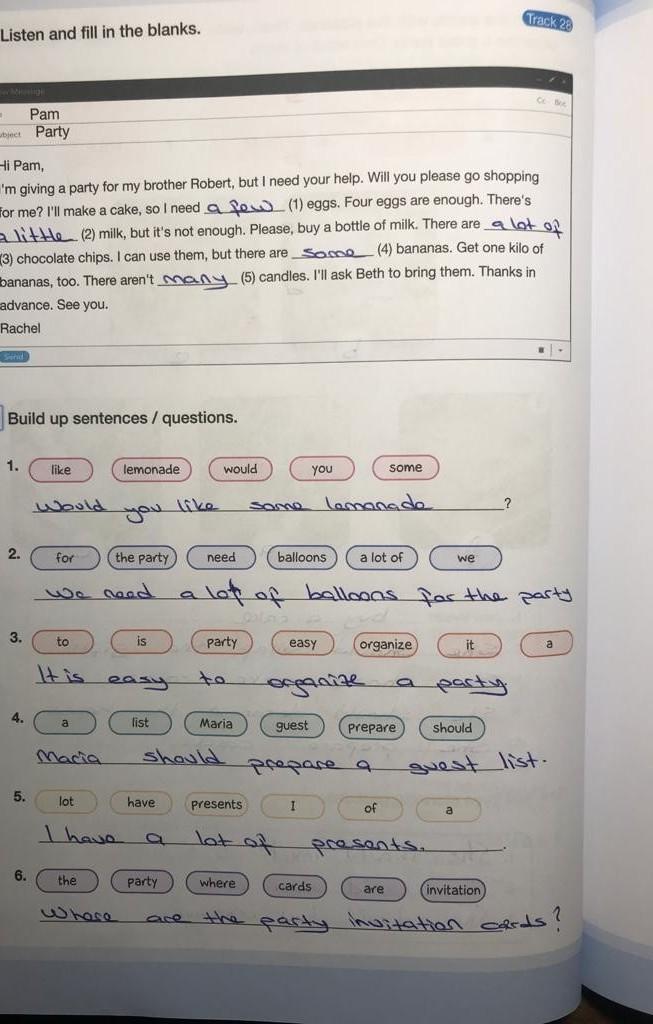 Listen and fill in the blanks.
Track 28
Cc Bcc
Pam
Party
Hi Pam,
I'm giving a party for my brother Robert, but I need your help. Will you please go shopping
for me? I'll make a cake, so I need a few (1) eggs. Four eggs are enough. There's
a little (2) milk, but it's not enough. Please, buy a bottle of milk. There are a lot of
(3) chocolate chips. I can use them, but there are some (4) bananas. Get one kilo of
bananas, too. There aren't many (5) candles. I'll ask Beth to bring them. Thanks in
advance. See you.
Rachel
Send
Build up sentences / questions.
1. like lemonade would you some
Would you like some lemonade ?
2. for the party need balloons a lot of we
We need a lot of balloons for the party
3. to is party easy organize it a
It is easy to organize a party.
4. a list Maria guest prepare should
Maria should prepare a guest list.
5. lot have presents I of a
I have a lot of presents. .
6. the party where cards are invitation
Where are the party invitation cards?